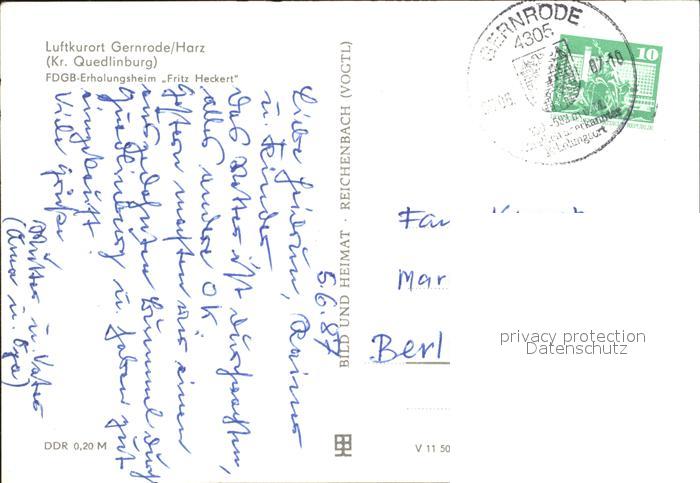 Luftkurort Gernrode/Harz
(Kr. Quedlinburg)
FDGB-Erholungsheim „Fritz Heckert"
5.6.87
Liebe Rainer
u. Kinder
das Wetter ist durchwachsen,
alles andere OK
Gestern machten wir einen
ausgedehnten Bummel durch
Quedlinburg u. haben gut
eingekauft.
Viele Grüße
Mutter u. Vater
(Oma u. Opa)
BILD UND HEIMAT · REICHENBACH (VOGTL)
GERNRODE
4305
10
Mar
Berl
privacy protection
Datenschutz
DDR 0,20 M
V 11 50